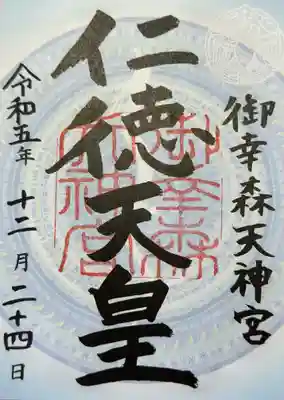 御幸森天神宮
仁徳天皇
令和五年十二月二十四日